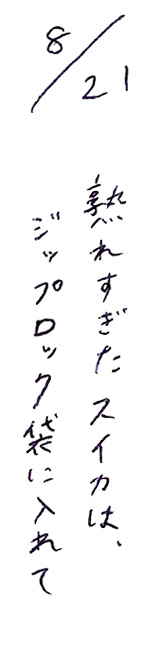 8/21
熟れすぎたスイカは、
ジップロック袋に入れて